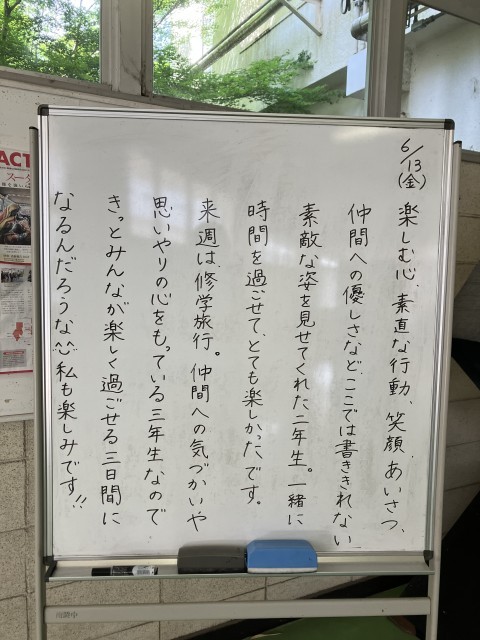 6/13(金)
楽しむ心、素直な行動、笑顔、あいさつ、
仲間への優しさなど、ここでは書ききれない
素敵な姿を見せてくれた二年生。一緒に
時間を過ごせて、とても楽しかったです。
来週は修学旅行。仲間への気づかいや
思いやりの心をもっている三年生なので
きっとみんなが楽しく過ごせる三日間に
なるんだろうな^^私も楽しみです!!
ACT